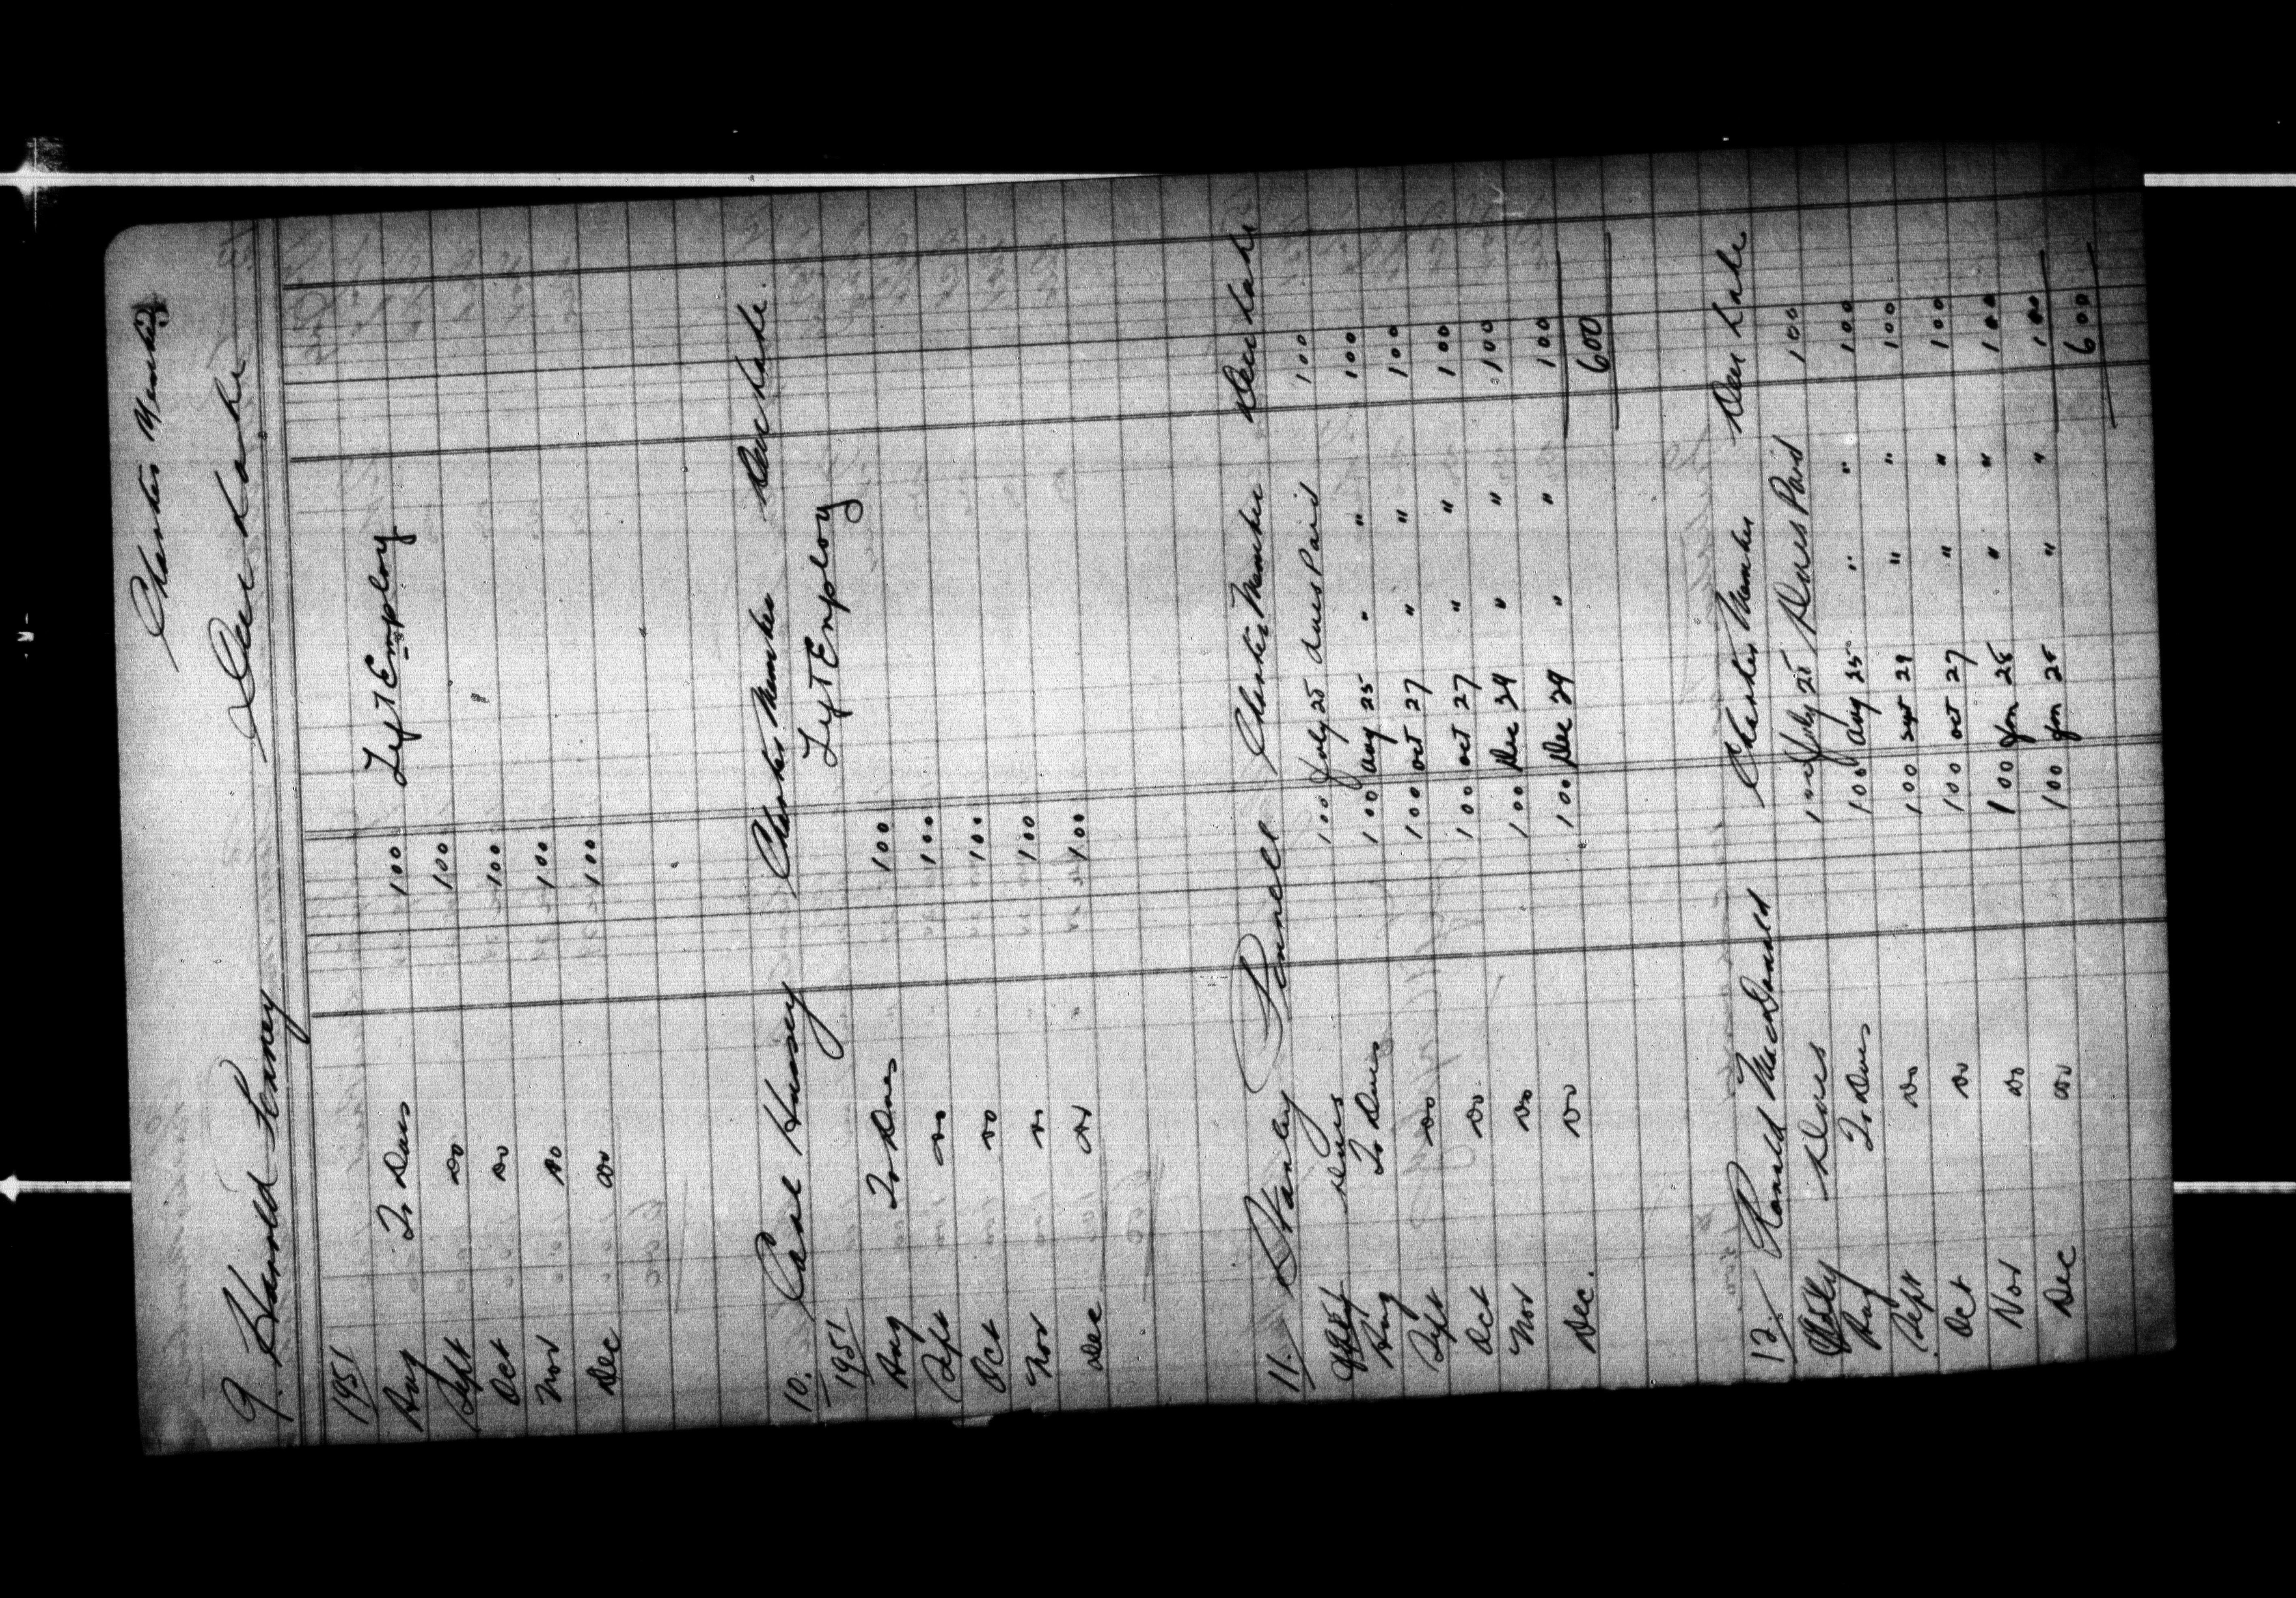 Charter Member
9. Harold Tenney Deer Lake
1951
Left Employ
Aug To Dues 100
Sept do 100
Oct do 100
Nov do 100
Dec do 100
10. Carl Hussey Charter Member Deer Lake.
1951 Left Employ
Aug To Dues 100
Sept do 100
Oct do 100
Nov do 100
Dec do 100
11. Stanley Pennell Charter Member Deer Lake
July Dues 100 July 25 dues Paid 100
Aug To Dues 100 Aug 25 " " 100
Sept do 100 oct 27 " " 100
Oct do 100 oct 27 " " 100
Nov do 100 Dec 29 " " 100
Dec. do 100 Dec 29 " " 100
600
12. Ronald MacDonald Charter Member Deer Lake
July Dues 100 July 25 Dues Paid 100
Aug To Dues 100 Aug 25 " " 100
Sept do 100 sept 29 " " 100
Oct do 100 oct 27 " " 100
Nov do 100 Jan 25 " " 100
Dec do 100 Jan 25 " " 100
600